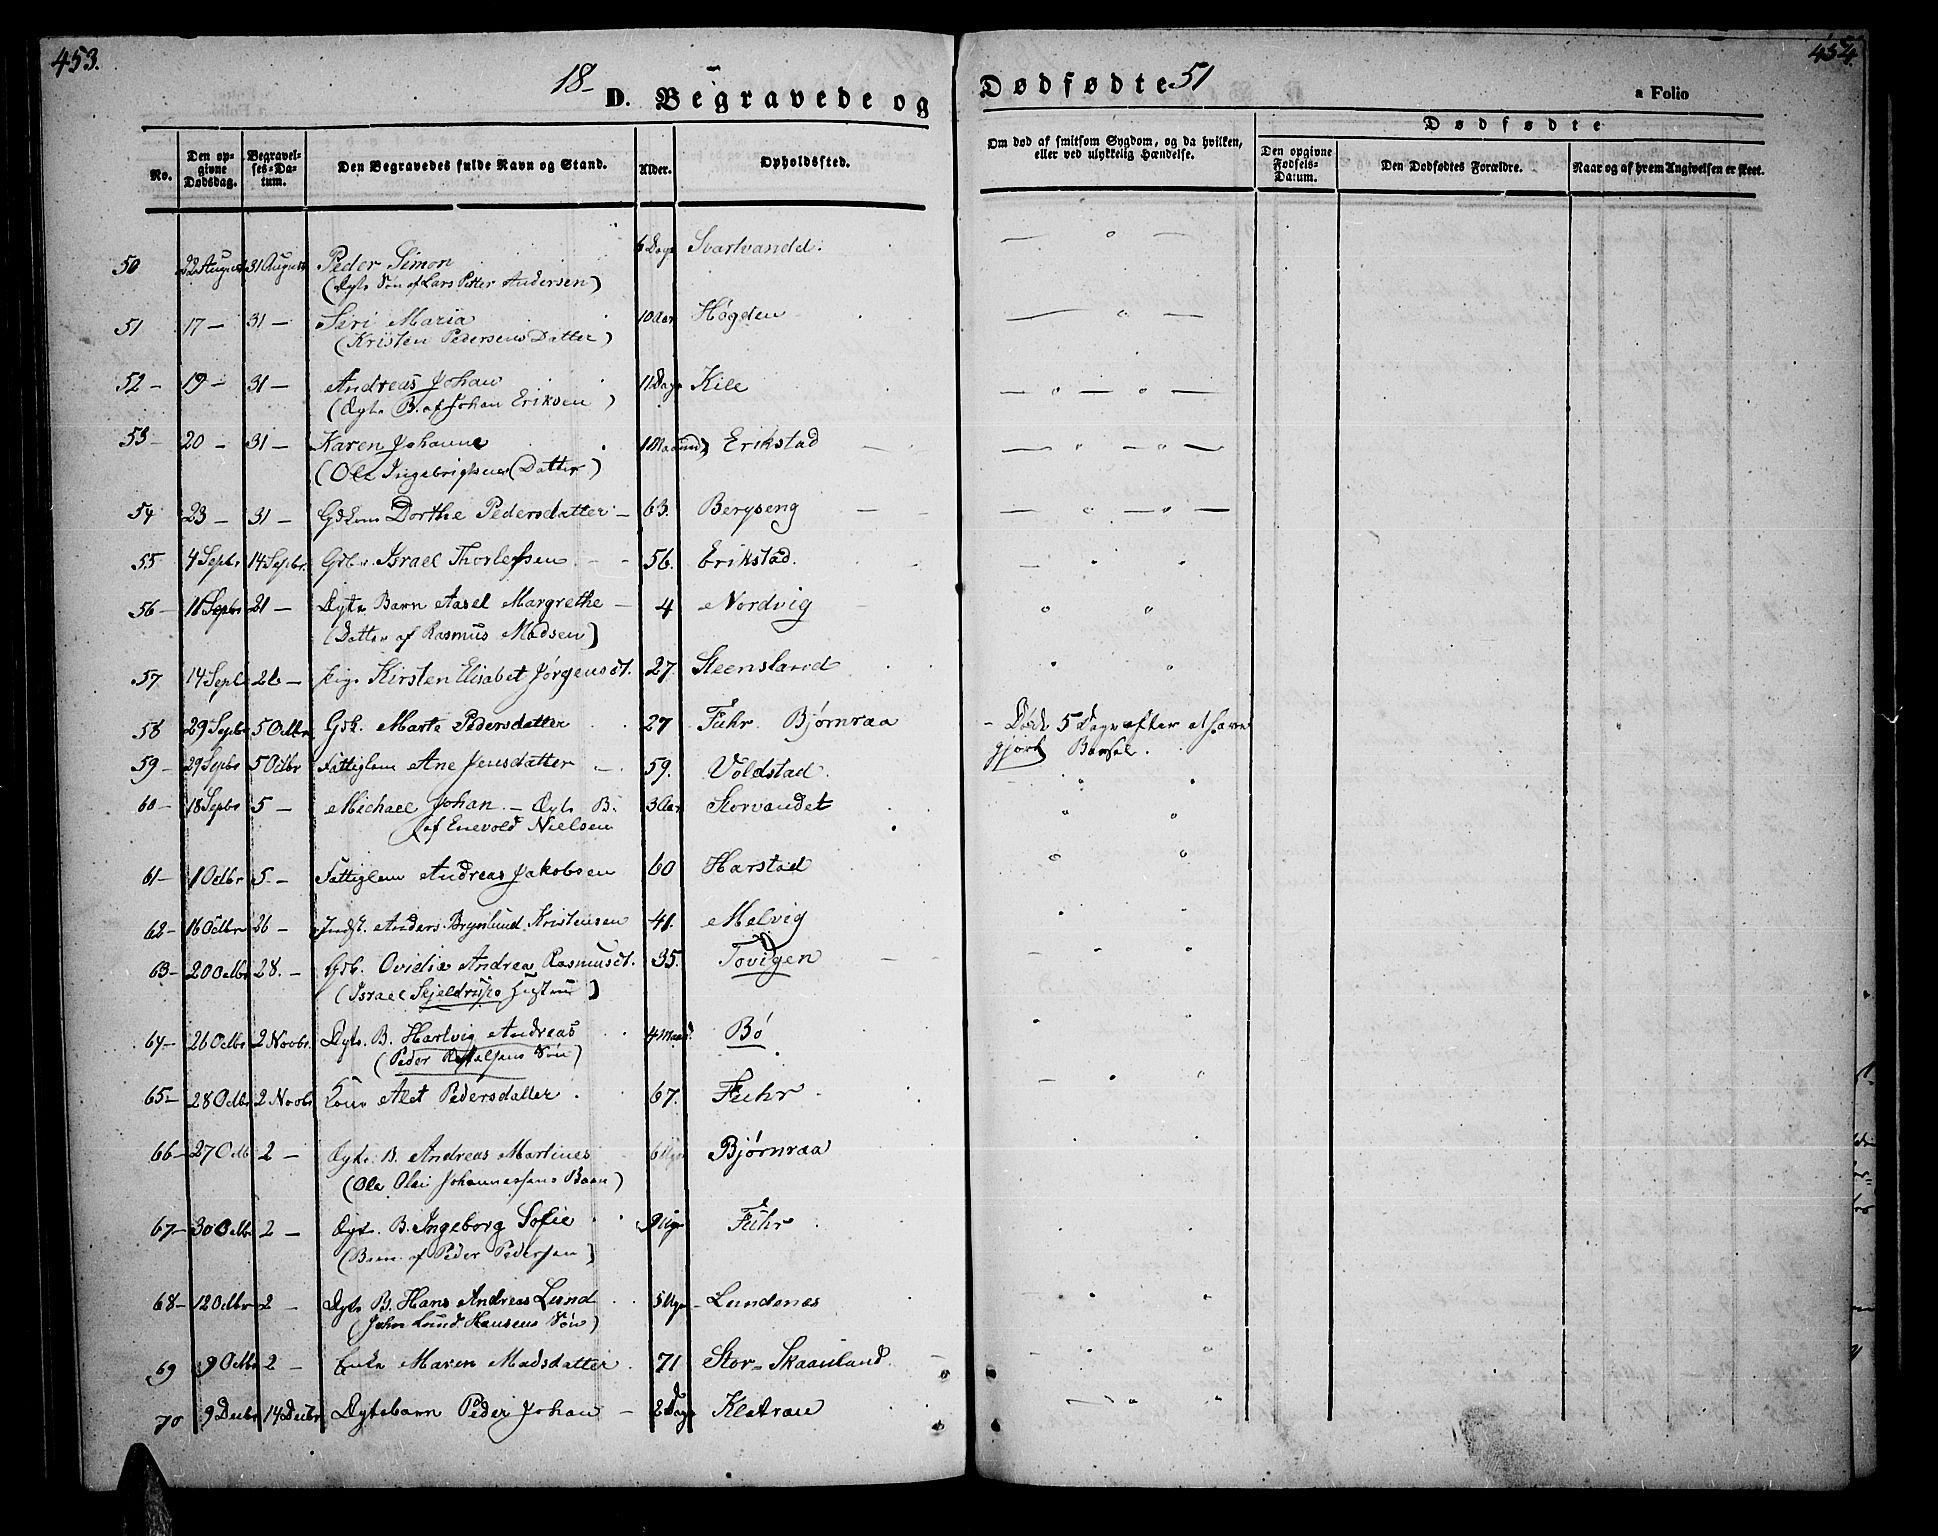 453.
454
18-51
D. Begravede og Dødfødte
a Folio
No.
Den opgivne Dødsdag.
Begravelses-Datum.
Den Begravedes fulde Navn og Stand.
Alder.
Opholdssted.
Om død af smitsom Sygdom, og da hvilken, eller ved ulykkelig Hændelse.
Dødfødte
Den opgivne Fødsels-Datum.
Den Dødfødtes Forældre.
Naar og af hvem Angivelsen er skeet.
50 22 August 31 August Peder Simon 6 Dage Svartvandd.
(Ægte Søn af Lars Petter Andersen)
51 17 — 31 — Siri Maria 10 Aar Høgden
(Kristen Pedersens Datter)
52 - 19 - 31 — Andreas Johan 11 Dage Kile
(Ægte B. af Johan Eriksen)
53 - 20 - 31 — Karen Johanne 1 Maaned Erikstad
(Ole Ingebrigtsens Datter)
54 23 — 31 — Gdkone Dorthe Pedersdatter — 63. Bergseng
55 4 Sepbr 14 Sepbr. Gdbr. Israel Thorlefsen 56. Erikstad.
56 - 11 Sepbr 21 — Ægte Barn Aasel Margrethe — 4 Nordvig
(Datter af Rasmus Madsen)
57 14 Sepb 21 — Pige Kirsten Elisabet Jørgensdt. 27. Steensland
58 29 Sepbr 5 Octbr Gdk. Marte Pedersdatter 27 Fuhr Bjørnraa - Døde 5 Dage efter at have
gjort Barsel.
59 - 29 Sepbr 5 Octbr Fattiglem Ane Jensdatter — 59. Voldstad.
60 - 18 Sepbr 5 — Michael Johan. — Ægte B. 3 Aar Storvandet
(af Enevold Nielsen
61 - 1 Octbr 5. — Fattiglem Andreas Jakobsen 60 Harstad
62 - 16 Octbr 26 — Indst. Anders Brynlund Kristensen 41. Melvig
63 - 20 Octbr 28. — Gdk. Ovidia Andrea Rasmusdt. 35. Tovigen
(Israel Skjeldrups Hustru)
64 - 26 Octbr 2 Novbr. Ægte B. Hartvig Andreas 4 Maand. Bø
(Peder Søn)
65 - 28 Octbr 2 Novbr Kone Alet Pedersdatter 67. Fuhr
66 - 27 Octb 2 — Ægte B. Andreas Martines 6 Uger Bjørnraa
(Ole Olai Johannessens Barn)
67 - 30 Octbr 2 — Ægte B. Ingeborg Sofie 9 Uger Fuhr
(Barn af Peder Pedersen)
68 - 12 Octbr 2 - Ægte B. Hans Andreas Lund 5 Uger - Lundenes
(John Lund Hansens Søn)
69 9 Octbr 2 — Enke Maren Madsdatter 71 Stor-Skaanland
70 9 Decbr 14 Decbr Ægtebarn Peder Johan — 2 Dage Kletran